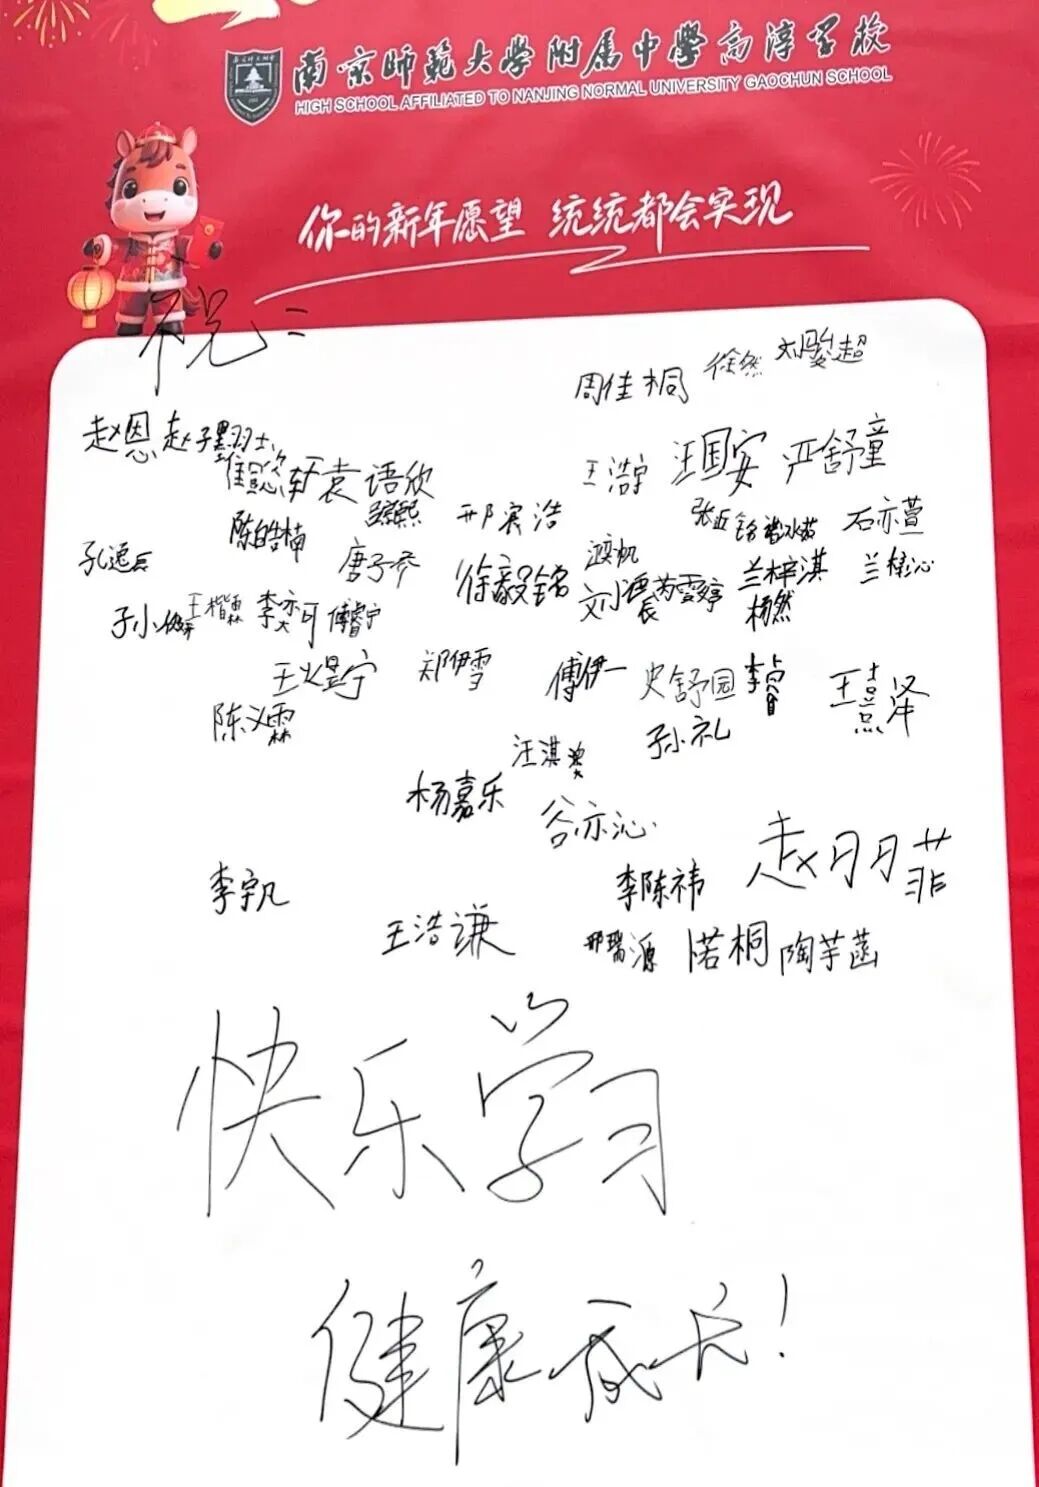 南京师范大学附属中学高淳学校
HIGH SCHOOL AFFILIATED TO NANJING NORMAL UNIVERSITY GAOCHUN SCHOOL
你的新年愿望 统统都会实现
祝：
周佳桐 徐然 刘骏超
赵恩 赵子墨
袁语欣 王浩宇 汪国安 严舒童
陈皓楠 邢宸浩 石亦萱
孔逸辰 唐子乔 徐毅铭 兰梓淇 兰梓沁
李奕可 傅睿宁 杨然
王煜宁 郑伊雪 傅伊一 史舒园 李睿 王熹泽
陈义霖 汪淇 孙礼
杨嘉乐 谷亦沁
李宇凡 李陈祎 赵玥菲
王浩谦 邢瑞源 诺桐 陶芋菡
快乐学习
健康成长！